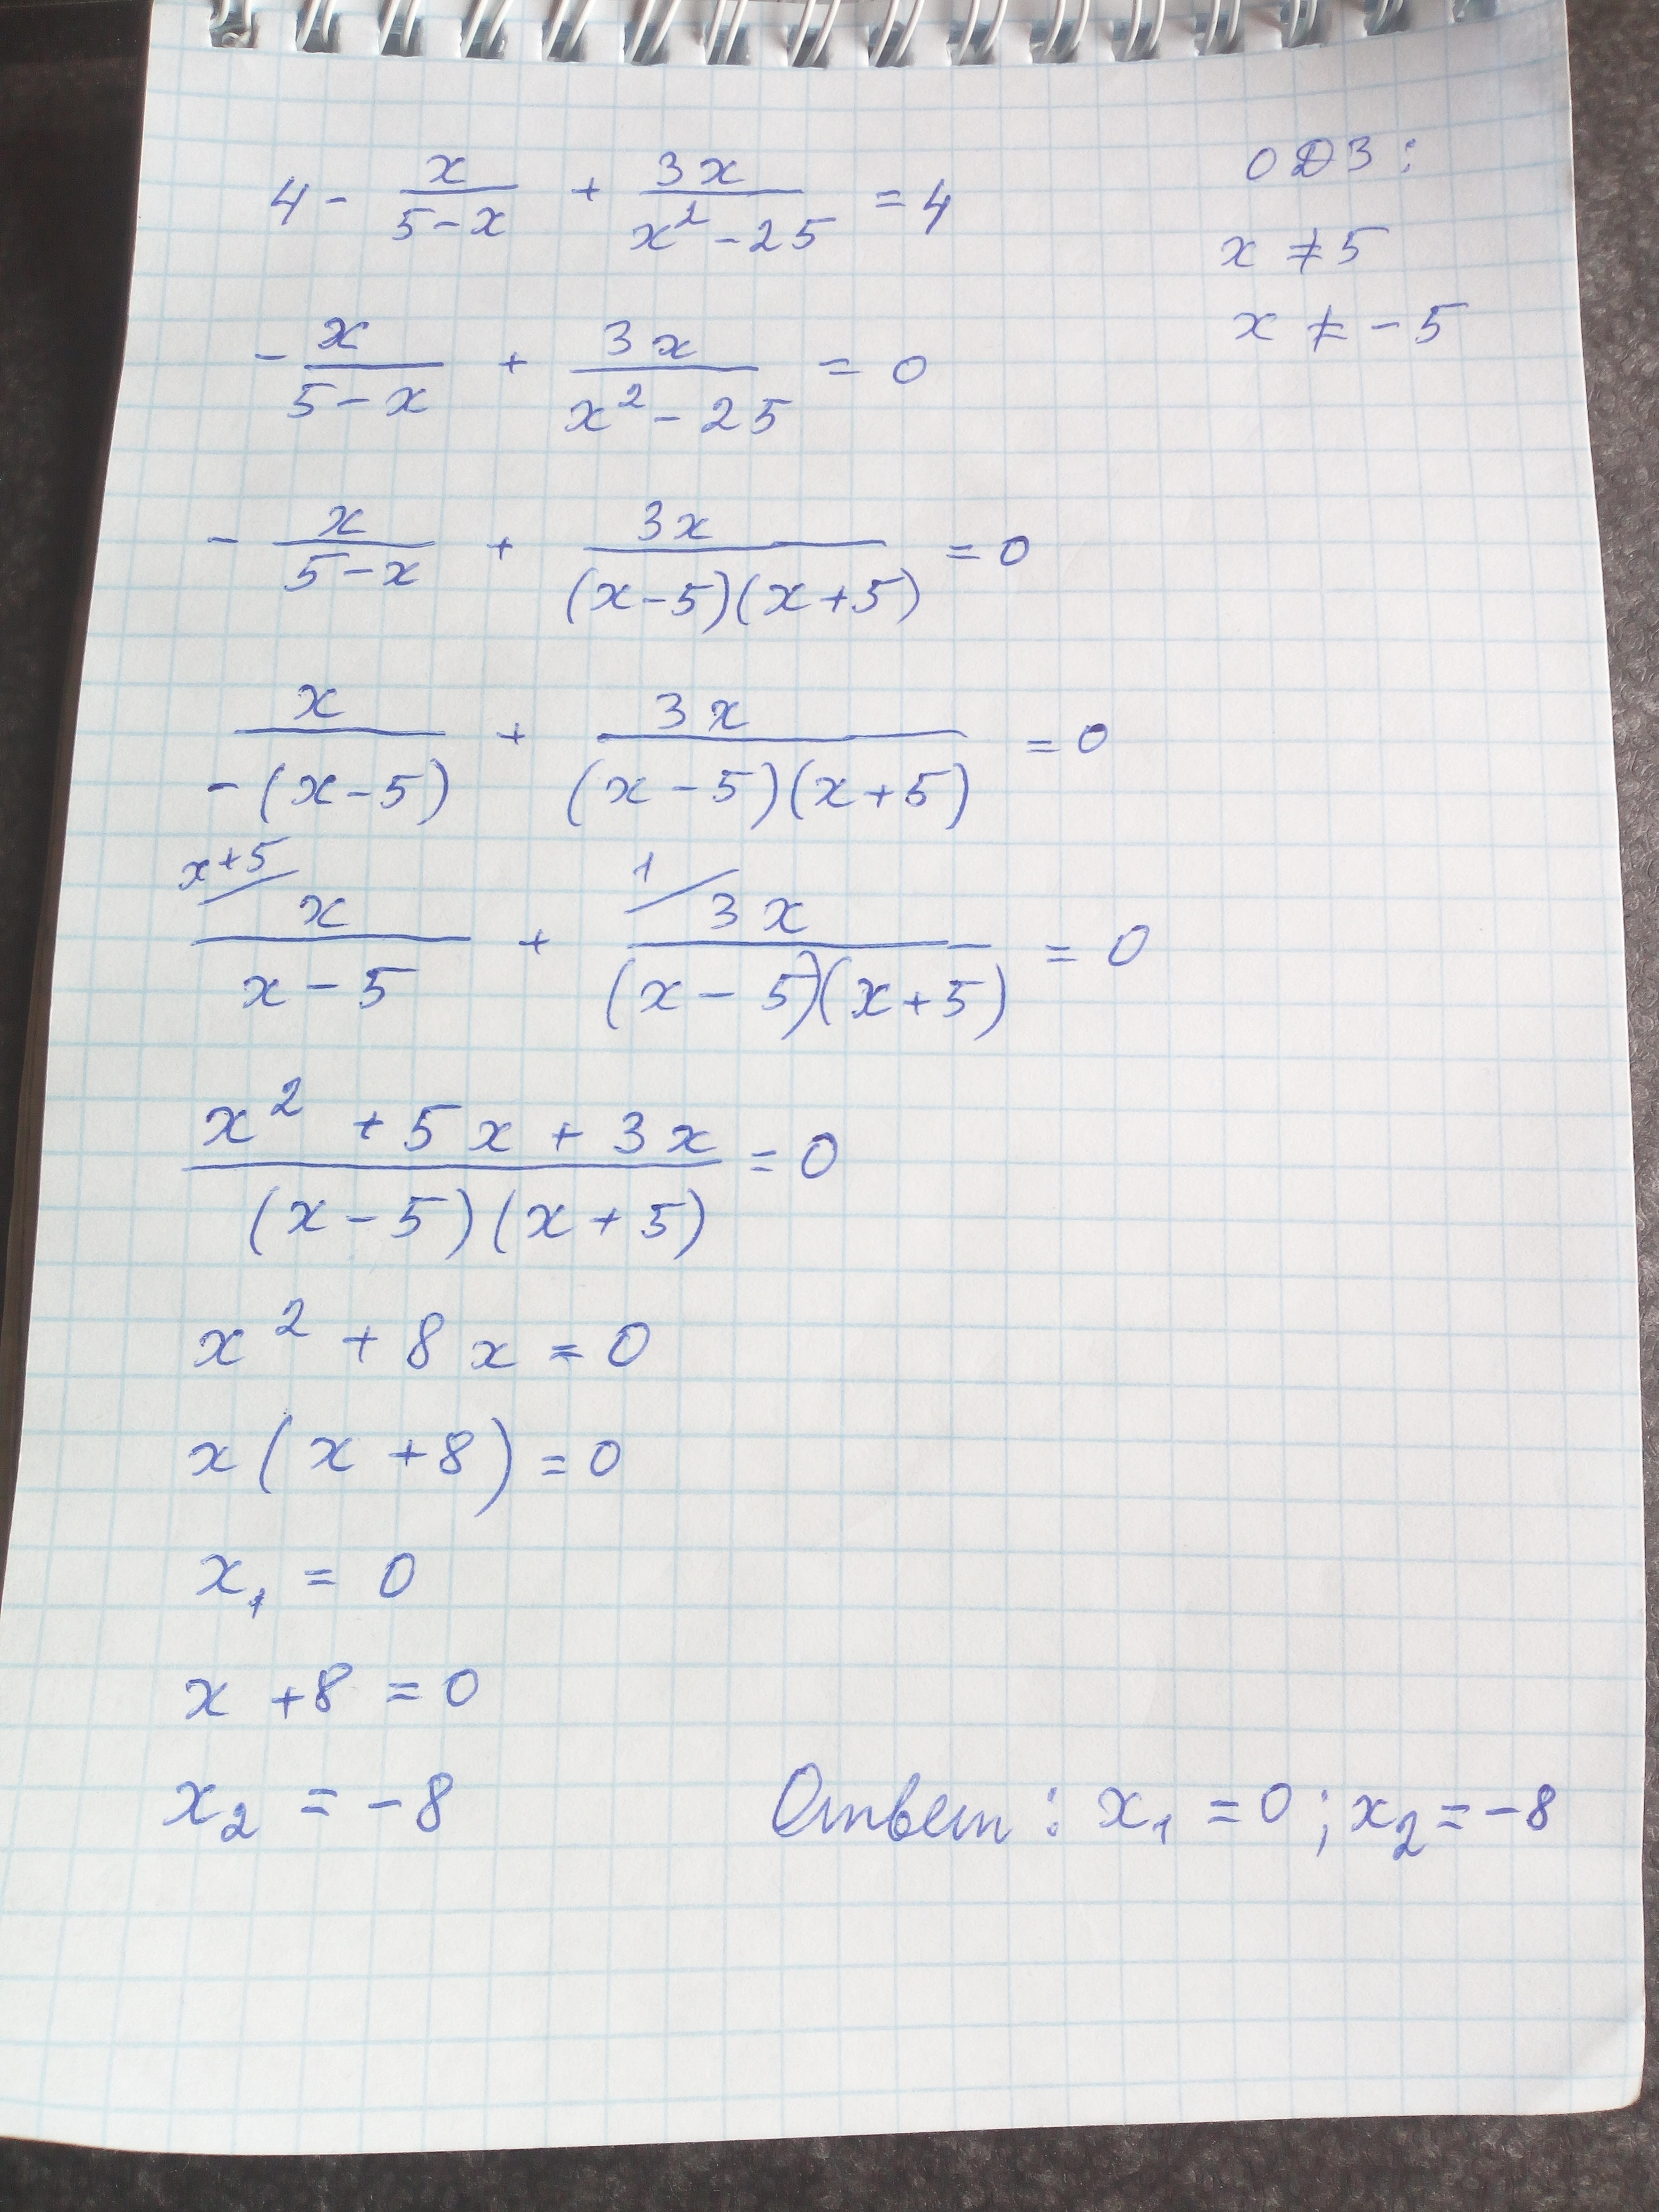 4 - x/(5-x) + 3x/(x²-25) = 4
ОДЗ:
x ≠ 5
x ≠ -5
- x/(5-x) + 3x/(x²-25) = 0
- x/(5-x) + 3x/((x-5)(x+5)) = 0
x/(-(x-5)) + 3x/((x-5)(x+5)) = 0
x+5/ x/(x-5) + 1/ 3x/((x-5)(x+5)) = 0
(x²+5x+3x)/((x-5)(x+5)) = 0
x² + 8x = 0
x(x+8) = 0
x₁ = 0
x + 8 = 0
x₂ = -8
Ответ: x₁ = 0; x₂ = -8